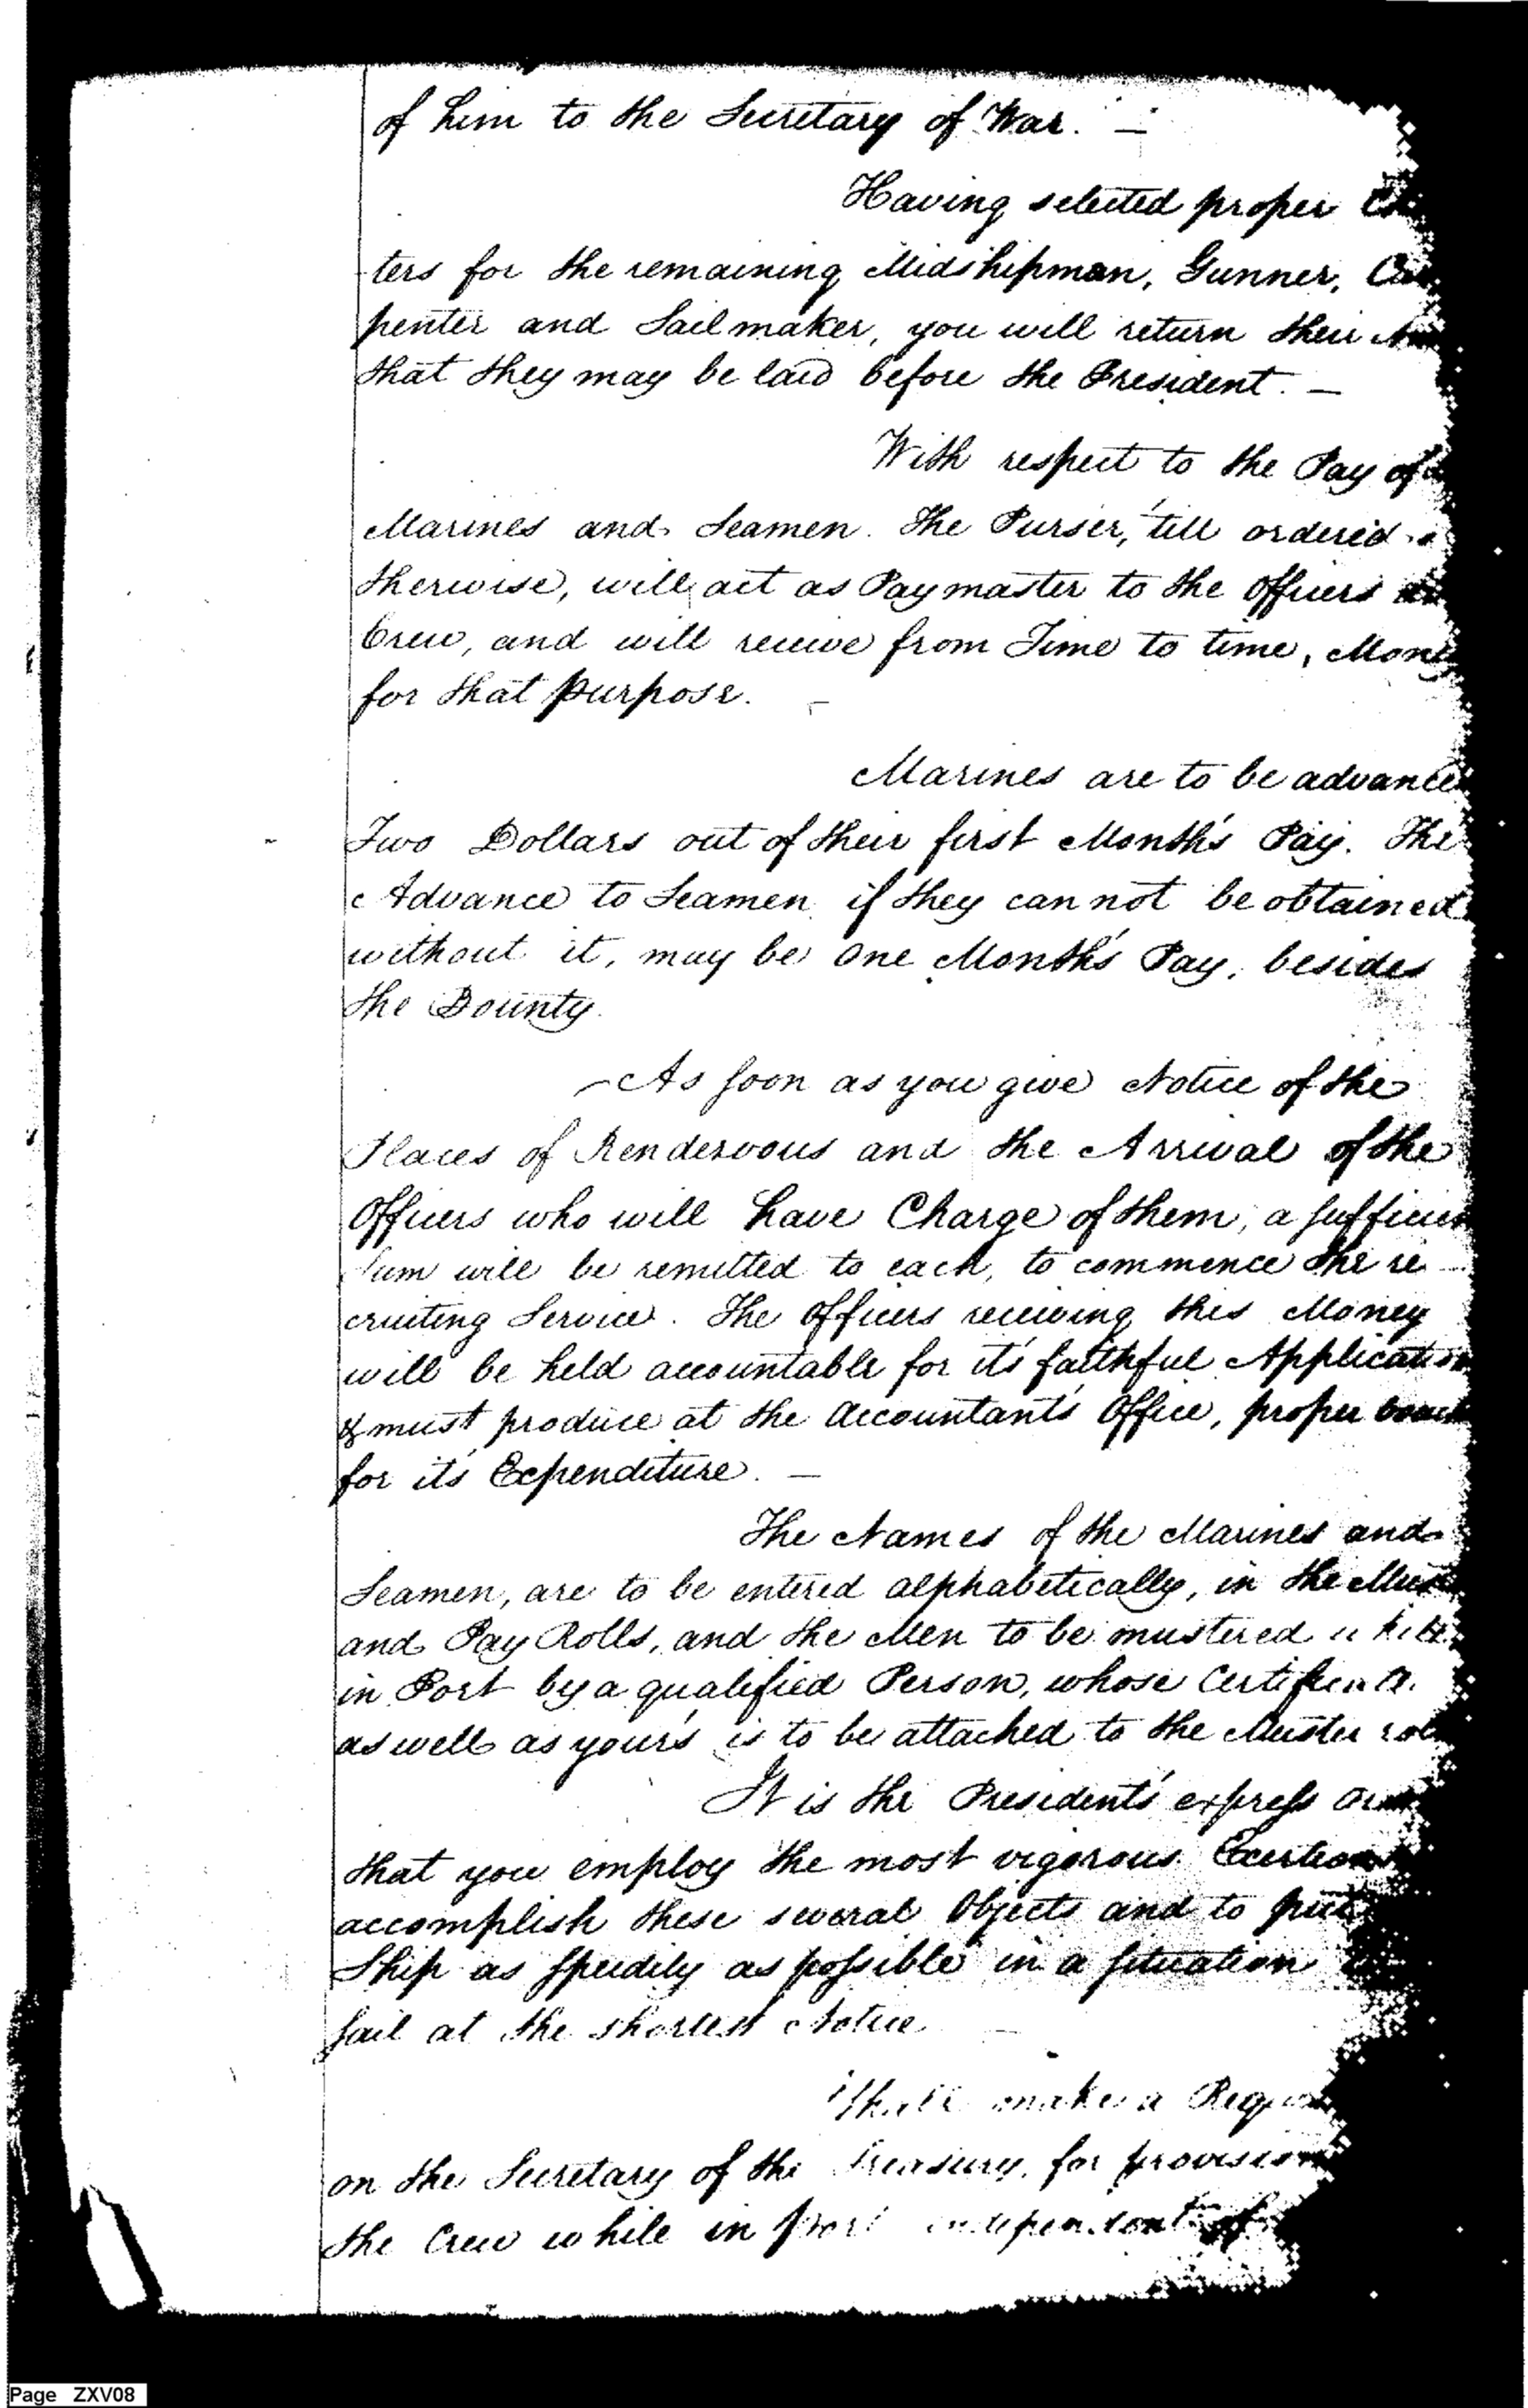 of him to the Secretary of War. —
Having selected proper
ters for the remaining Midshipman, Gunner, Car
penter and Sailmaker, you will return their
that they may be laid before the President. —
With respect to the Pay of
Marines and Seamen. The Purser, 'till ordered o
therwise, will act as Paymaster to the Officers
Crew, and will receive from Time to time, Mone
for that purpose. —
Marines are to be advance
Two Dollars out of their first Month's Pay. The
Advance to Seamen if they can not be obtained
without it, may be One Month's Pay, besides
the Bounty.
As soon as you give Notice of the
Places of Rendezvous and the Arrival of the
Officers who will have Charge of them, a sufficien
Sum will be remitted to each, to commence the re
cruiting Service. The Officers receiving this Money
will be held accountable for it's faithful Application
& must produce at the Accountant's Office, proper vouch
for it's Expenditure. —
The Names of the Marines and
Seamen, are to be entered alphabetically, in the Mus
and Pay Rolls, and the Men to be mustered while
in Port by a qualified Person, whose Certificate
as well as your's is to be attached to the Muster rol
It is the President's express
that you employ the most vigorous Exertion
accomplish these several Objects and to put
Ship as speedily as possible in a situation
sail at the shortest Notice —
I shall make a Requ
on the Secretary of the Treasury, for provision
the Crew while in port independent of
Page ZXV08